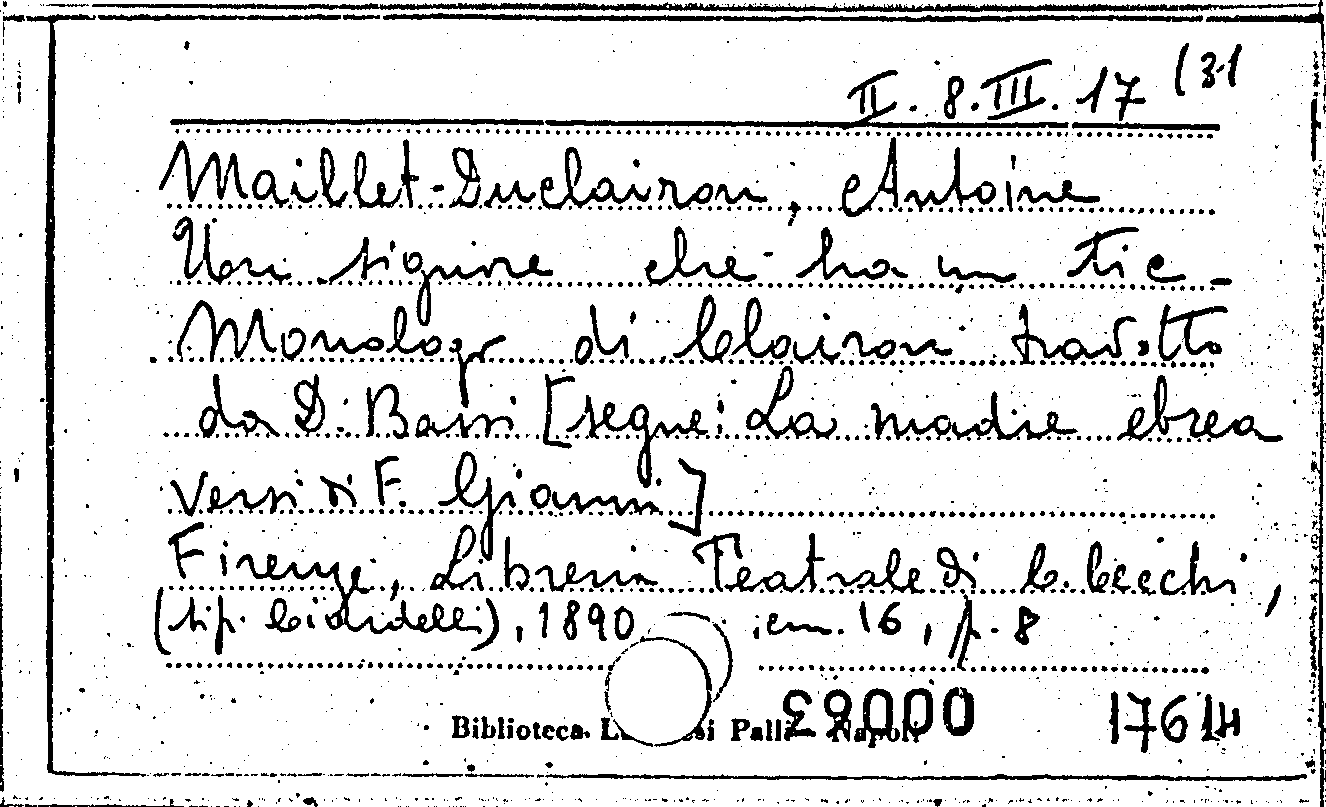 II. 8. III. 17 (31
Maillet-Duclairon, Antoine
Un signore che ha un tic -
Monologo di Clairon tradotto
da D. Bassi [segue: La madre ebrea
versi di F. Gianni]
Firenze, Libreria Teatrale di C. Cecchi,
(tip. Ciardelli), 1890 cm. 16, p. 8
Biblioteca Palli Napoli
17614